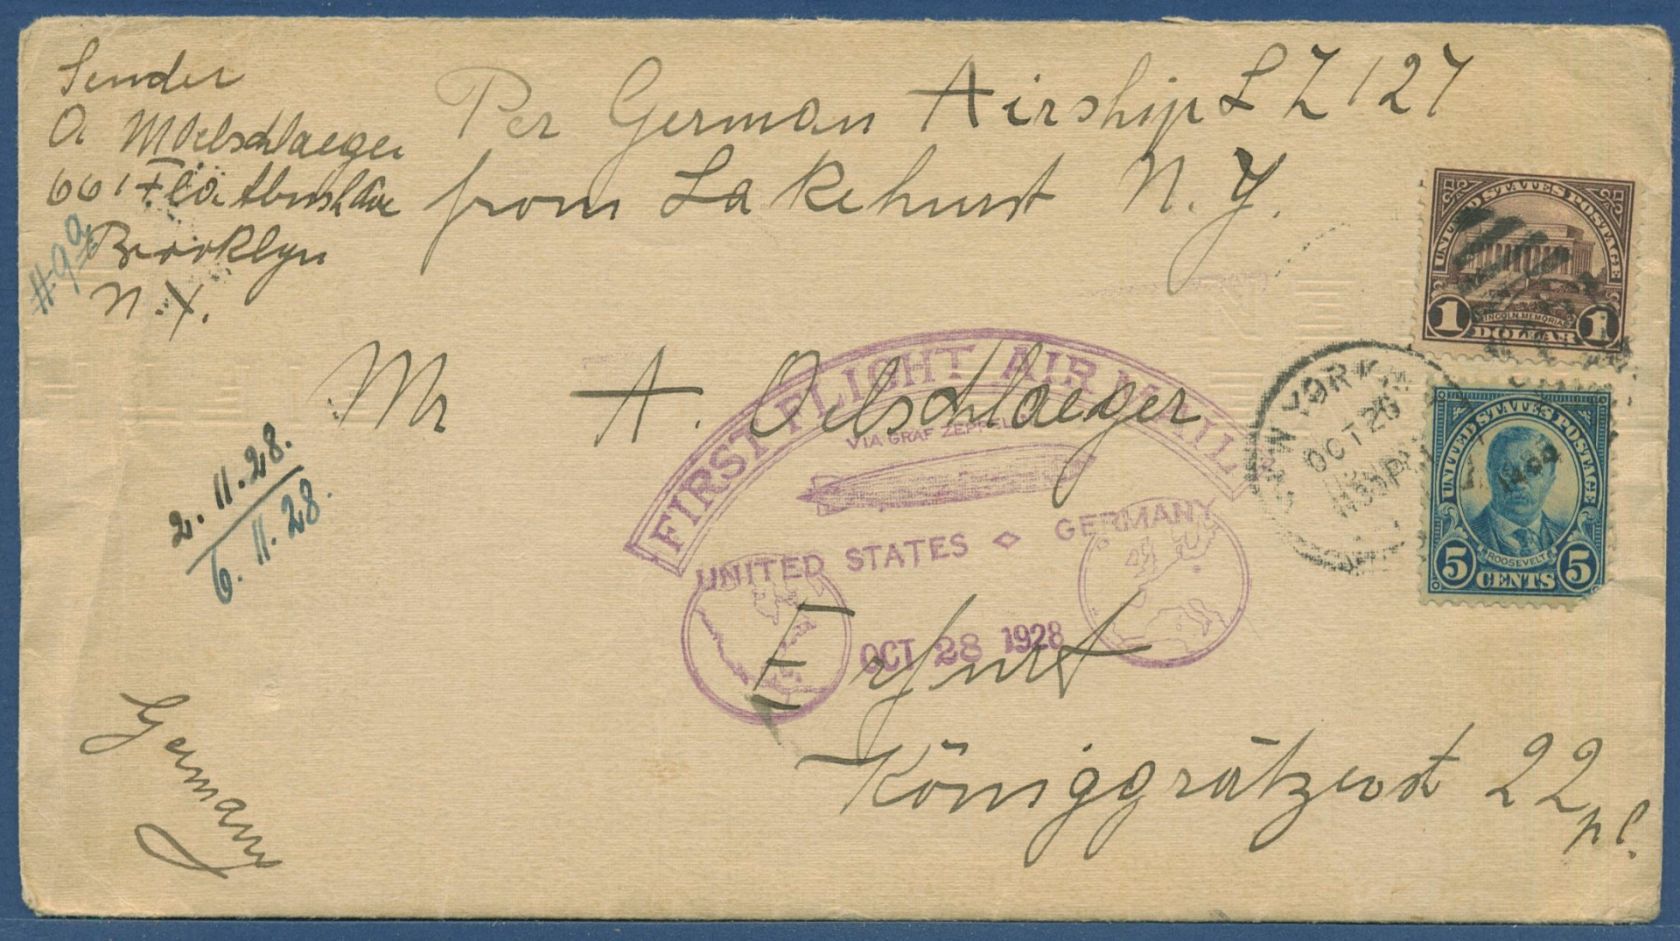 Sender
A Moelschlaeger
661 Flatbush Ave
Brooklyn
N.Y.
#99
Per German Airship LZ 127
from Lakehurst N.Y.
UNITED STATES POSTAGE
LINCOLN MEMORIAL
1 DOLLAR 1
NEW YORK
OCT 26
UNITED STATES POSTAGE
ROOSEVELT
5 CENTS 5
Mr A. Oelschlaeger
FIRST FLIGHT AIR MAIL
VIA GRAF ZEPPELIN
UNITED STATES GERMANY
OCT 28 1928
2. 11. 28.
6. 11. 28.
Erfurt
Königgrätzerst 22
pl.
Germany